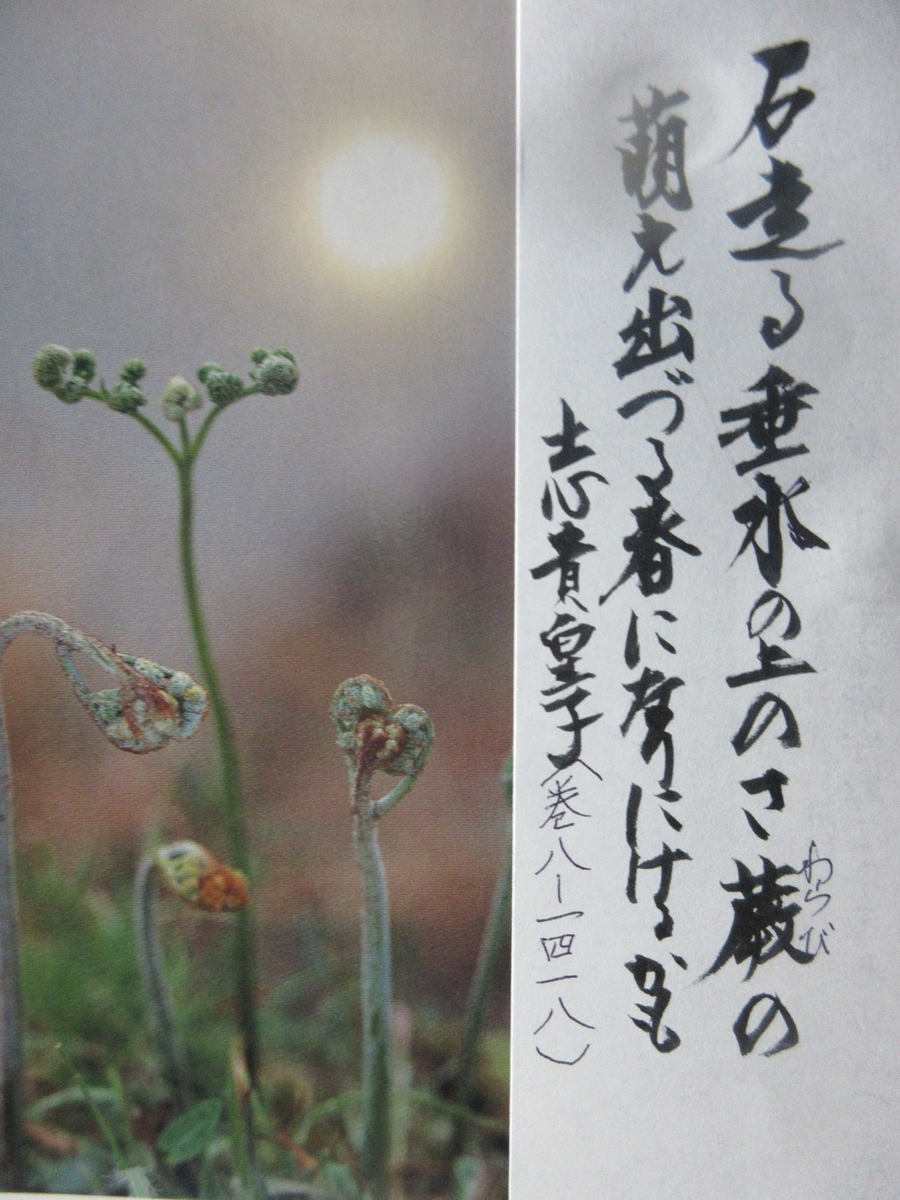 石走る垂水の上のさ蕨の
わらび
萌え出づる春になりにけるかも
志貴皇子(巻八ー一四一八)